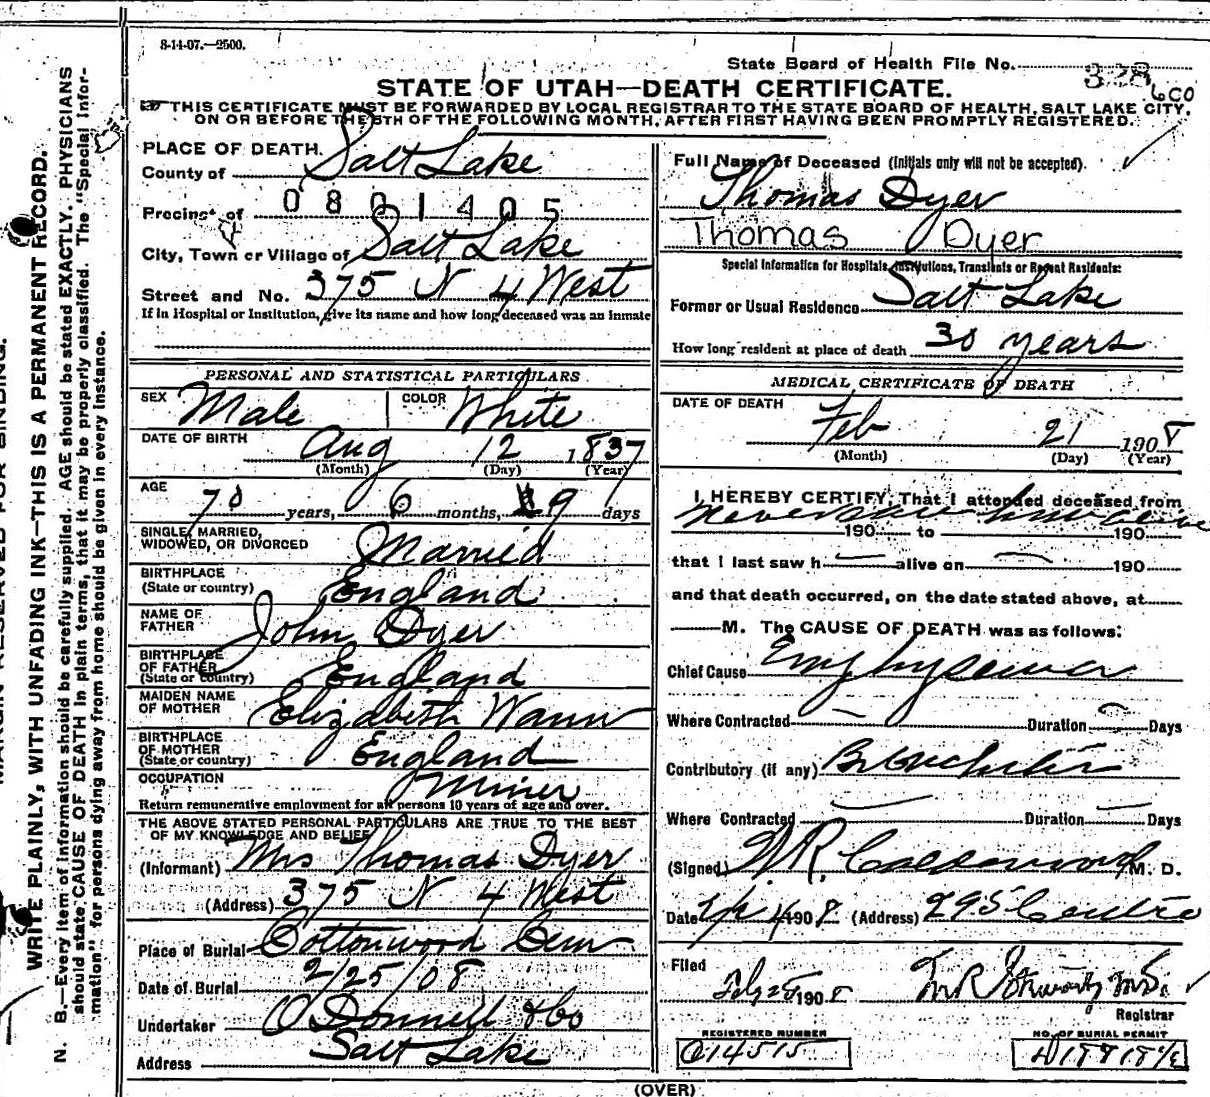 8-14-07.—2500.
State Board of Health File No. 338
600
STATE OF UTAH—DEATH CERTIFICATE.
THIS CERTIFICATE MUST BE FORWARDED BY LOCAL REGISTRAR TO THE STATE BOARD OF HEALTH, SALT LAKE CITY,
ON OR BEFORE THE 5TH OF THE FOLLOWING MONTH, AFTER FIRST HAVING BEEN PROMPTLY REGISTERED.
MARGIN RESERVED FOR BINDING.
WRITE PLAINLY, WITH UNFADING INK—THIS IS A PERMANENT RECORD.
N. B.—Every item of information should be carefully supplied. AGE should be stated EXACTLY. PHYSICIANS
should state CAUSE OF DEATH in plain terms, that it may be properly classified. The "Special Infor-
mation" for persons dying away from home should be given in every instance.
PLACE OF DEATH.
County of Salt Lake
Precinct of 0801405
City, Town or Village of Salt Lake
Street and No. 375 N 4 West
If in Hospital or Institution, give its name and how long deceased was an inmate
PERSONAL AND STATISTICAL PARTICULARS
SEX Male COLOR White
DATE OF BIRTH Aug 12 1837
(Month) (Day) (Year)
AGE 70 years, 6 months, 9 days
SINGLE, MARRIED,
WIDOWED, OR DIVORCED Married
BIRTHPLACE
(State or country) England
NAME OF
FATHER John Dyer
BIRTHPLACE
OF FATHER
(State or country) England
MAIDEN NAME
OF MOTHER Elizabeth Wann
BIRTHPLACE
OF MOTHER
(State or country) England
OCCUPATION Miner
Return remunerative employment for all persons 10 years of age and over.
THE ABOVE STATED PERSONAL PARTICULARS ARE TRUE TO THE BEST
OF MY KNOWLEDGE AND BELIEF
(Informant) Mrs Thomas Dyer
(Address) 375 N 4 West
Place of Burial Cottonwood Cem
Date of Burial 2/25/08
Undertaker O'Donnell & Co
Address Salt Lake
Full Name of Deceased (Initials only will not be accepted).
Thomas Dyer
Thomas Dyer
Special Information for Hospitals, Institutions, Transients or Recent Residents:
Former or Usual Residence Salt Lake
How long resident at place of death 30 years
MEDICAL CERTIFICATE OF DEATH
DATE OF DEATH
Feb 21 1908
(Month) (Day) (Year)
I HEREBY CERTIFY, That I attended deceased from
Never saw him alive
190 to 190
that I last saw h alive on 190
and that death occurred, on the date stated above, at
M. The CAUSE OF DEATH was as follows:
Chief Cause Emphysema
Where Contracted Duration Days
Contributory (if any) Bronchitis
Where Contracted Duration Days
(Signed) W.R. Calderwood M. D.
Date 1908 (Address) 295 Centre
Filed Feby 25 1908
Registrar
REGISTERED NUMBER NO. OF BURIAL PERMIT
O14515
(OVER)